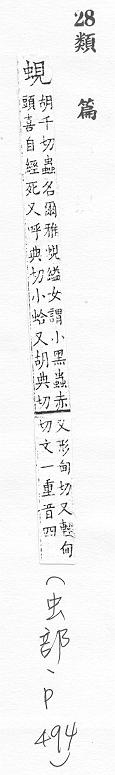 28類篇
蜆
胡千切蟲名爾雅蜆縊女謂小黑蟲赤
頭喜自經死又呼典切小蛤又胡典切
又形甸切又輕甸
切文一重音四
(虫部、P494)